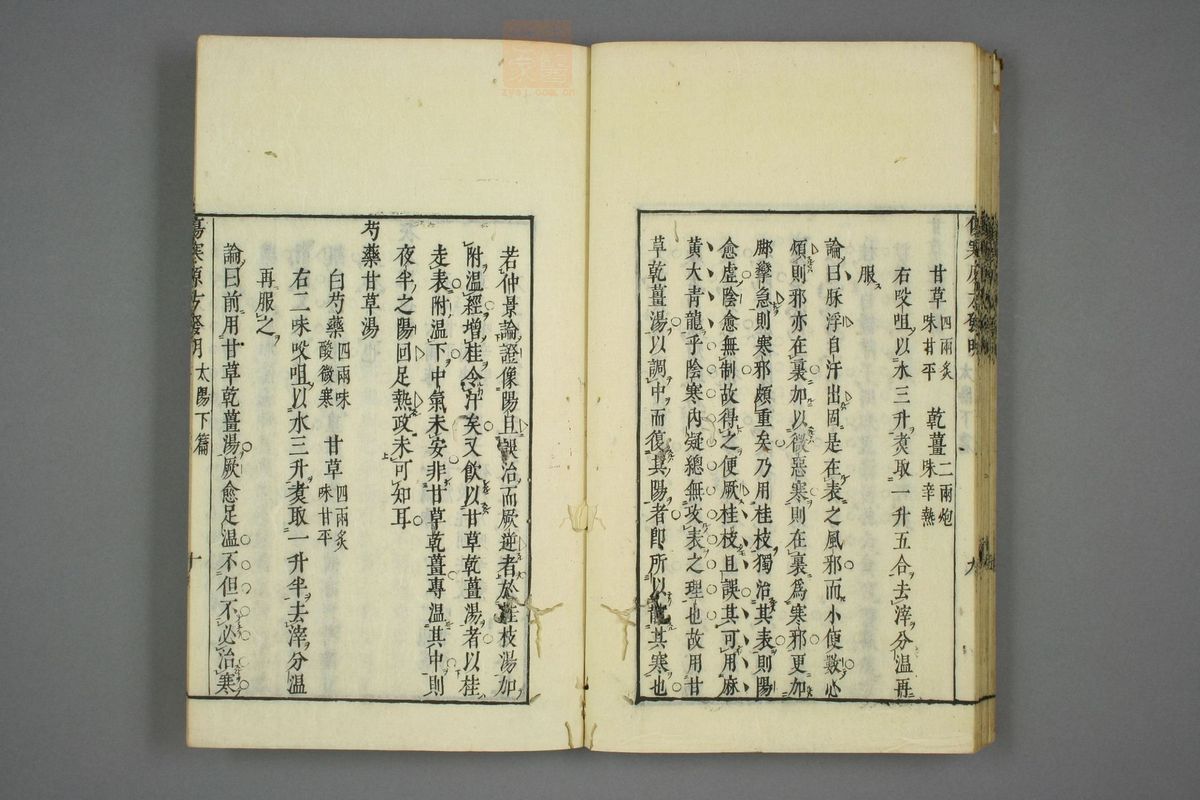 甘草四兩炙味甘平　乾薑二兩炮味辛熱
右㕮咀以水三升煑取一升五合去滓分溫再
服
論曰脉浮自汗出固是在表之風邪而小便數心
煩則邪亦在裏加以微惡寒則在裏爲寒邪更加
脚攣急則寒邪頗重矣乃用桂枝獨治其表則陽
愈虛陰愈無制故得之便厥桂枝且誤其可用麻
黃大青龍乎陰寒內凝總無攻表之理也故用甘
草乾薑湯以調中而復其陽者即所以散其寒也
九
若仲景論證像陽旦誤治而厥逆者於桂枝湯加
附溫經增桂令汗矣又飲以甘草乾薑湯者以桂
走表附溫下中氣未安非甘草乾薑專溫其中則
夜半之陽回足熱政未可知耳
芍藥甘草湯
白芍藥四兩味酸微寒　甘草四兩炙味甘平
右二味㕮咀以水三升煑取一升半去滓分溫
再服之
論曰前用甘草乾薑湯厥愈足溫不但不必治寒
傷寒原方發明 太陽下篇
十
zysj.com.cn